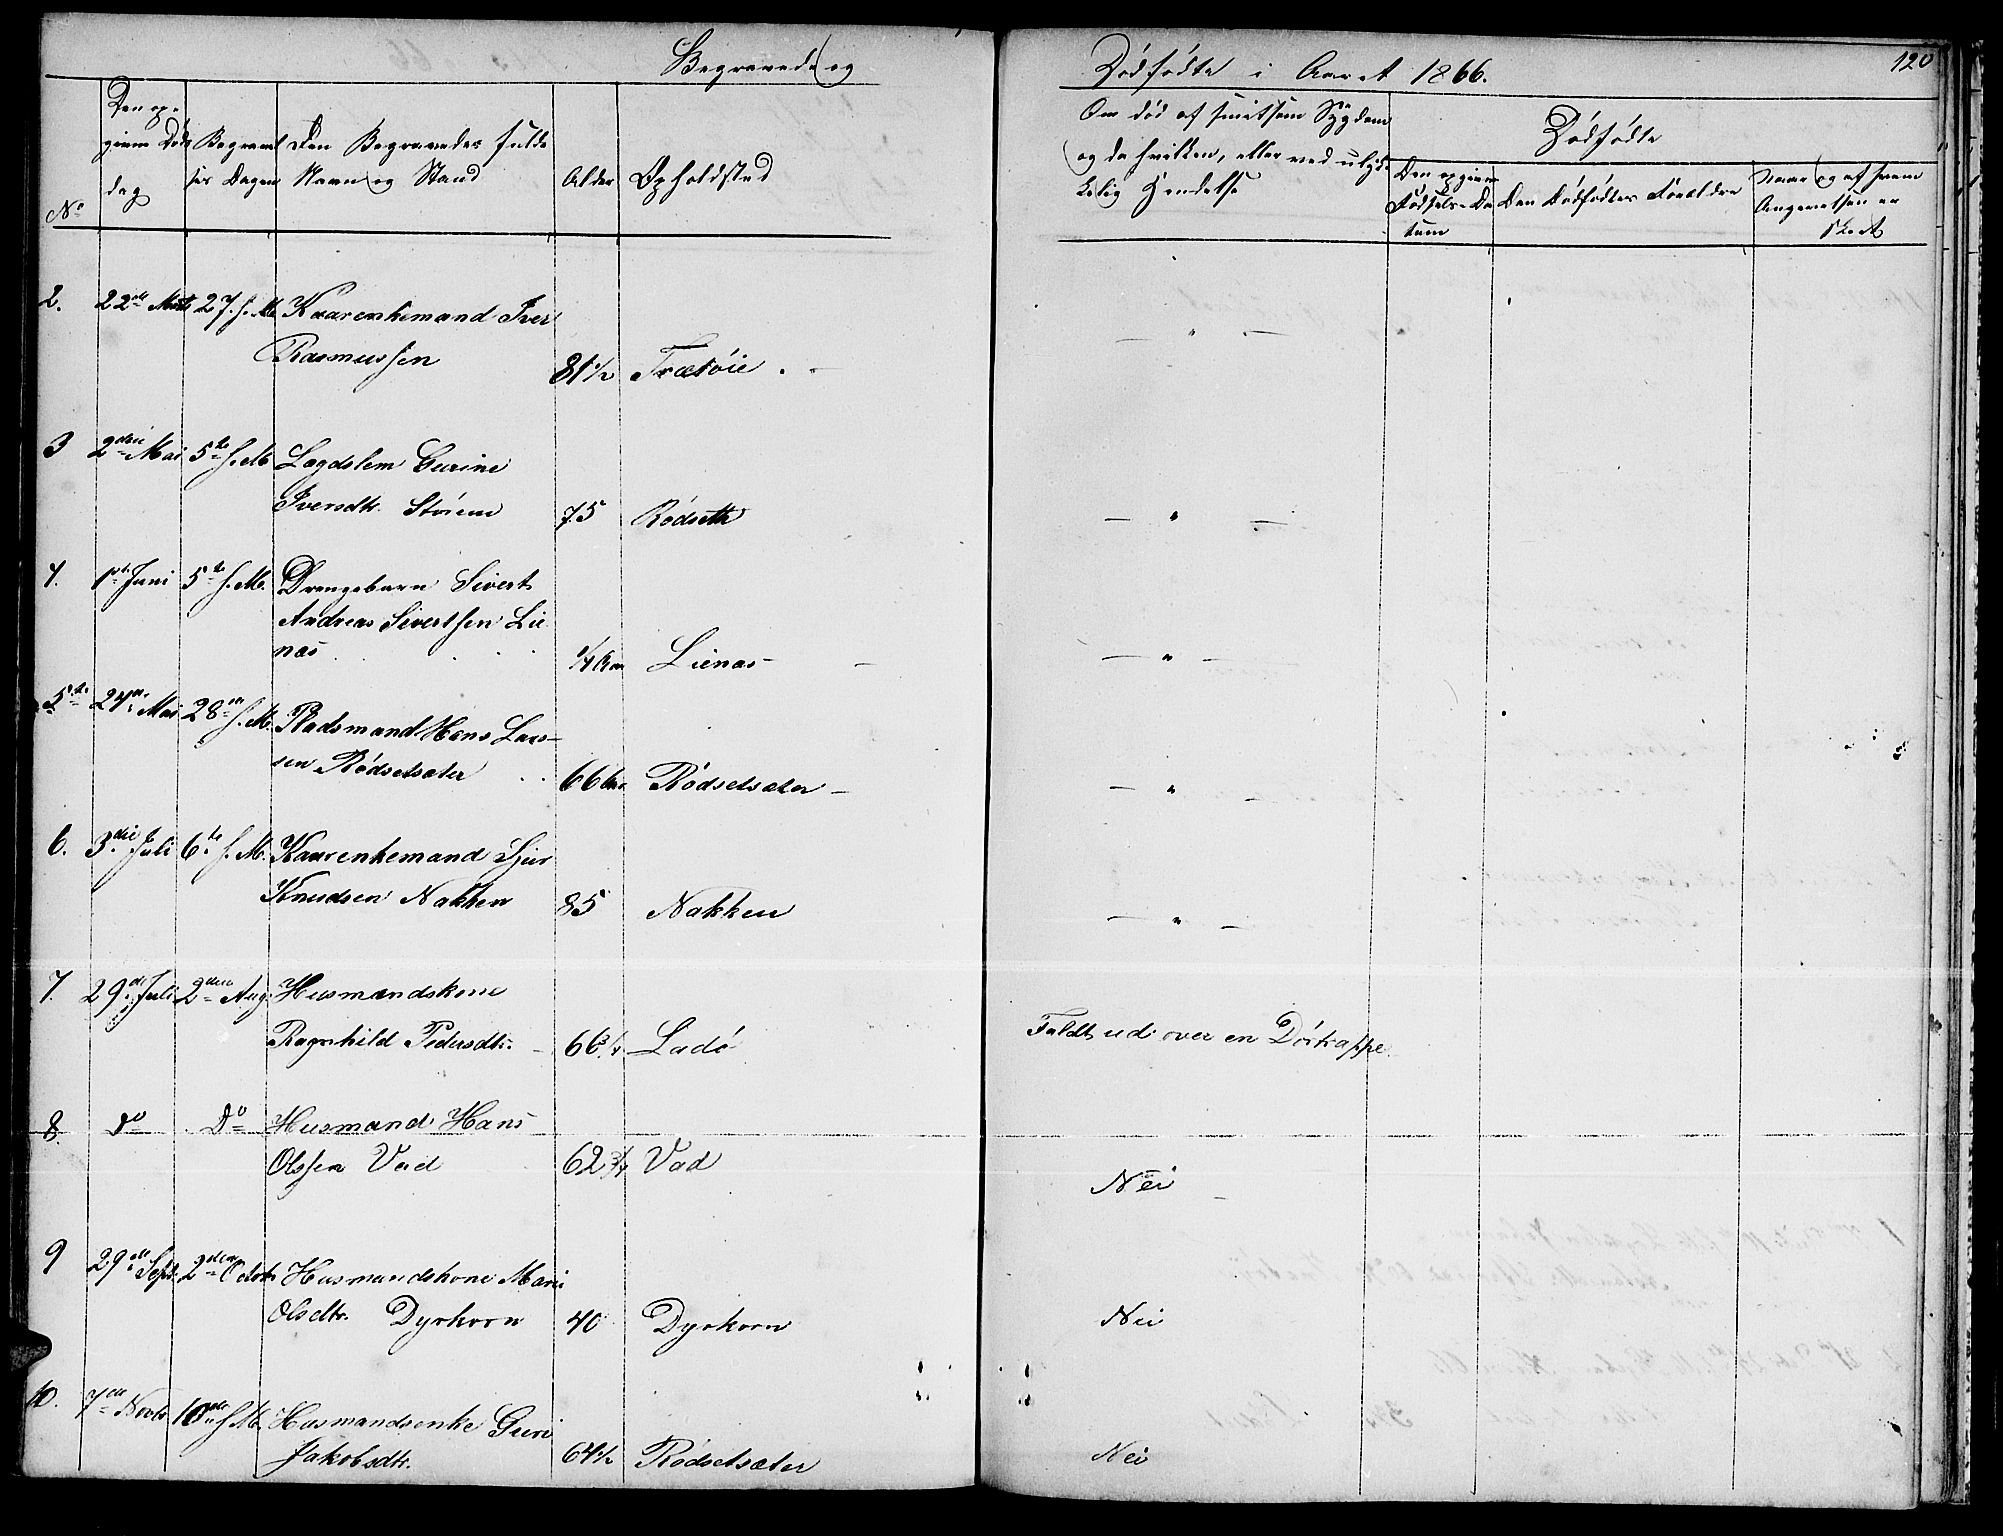 Begravede og Dödfödte i Aaret 1866.
120
No
Den op-
givne Döds
dag
Begravel
ses Dagen
Den Begravedes fulde
Navn og Stand
Alder
Opholdsted
Om död af smitsom Sygdom
og da hvilken, eller ved ulyk
kelig Hendelse
Dödfödte
Den opgivne
Födsels-Da
tum
Den Dödfödtes Foreldre
Naar og af hvem
Angivelsen er
skeet
2. 22de Marts 27. s. M. Kaarenkemand Iver
Rasmussen 81 1/2 Trætöie . - — " —
3 2den Mai 5te s. M. Lægdslem Gurine
Iversdtr. Stöien 75 Rödseth — " —
4. 1ste Juni 5te s. M. Drengebarn Sivert
Andreas Sivertsen Lie
næs 1/4 Lienæs - — " —
5te 24de Mai 28de s. M. Pladsmand Hans Lars-
sen Rödsetsæter 66 Rödsetsæter - — " —
6. 3die Juli 6te s. M. Kaarenkemand Sjur
Knudsen Nakken 85 Nakken — " —
7. 29de Juli 2den Aug. Husmandskone
Ragnhild Pedersdtr. 66 3/4 Ladö Faldt ud over en Dörtrappe.
8. Do Do Husmand Hans
Olssen Vad 62 3/4 Vad Nei
9 29de Sept. 2den Octobr Husmandskone Marie
Olsdtr. Dyrkorn 40 Dyrkorn Nei
10. 7de Novbr 10de s. M. Husmandsenke Guri
Jakobsdtr. 64 1/2 Rödsetsæter Nei